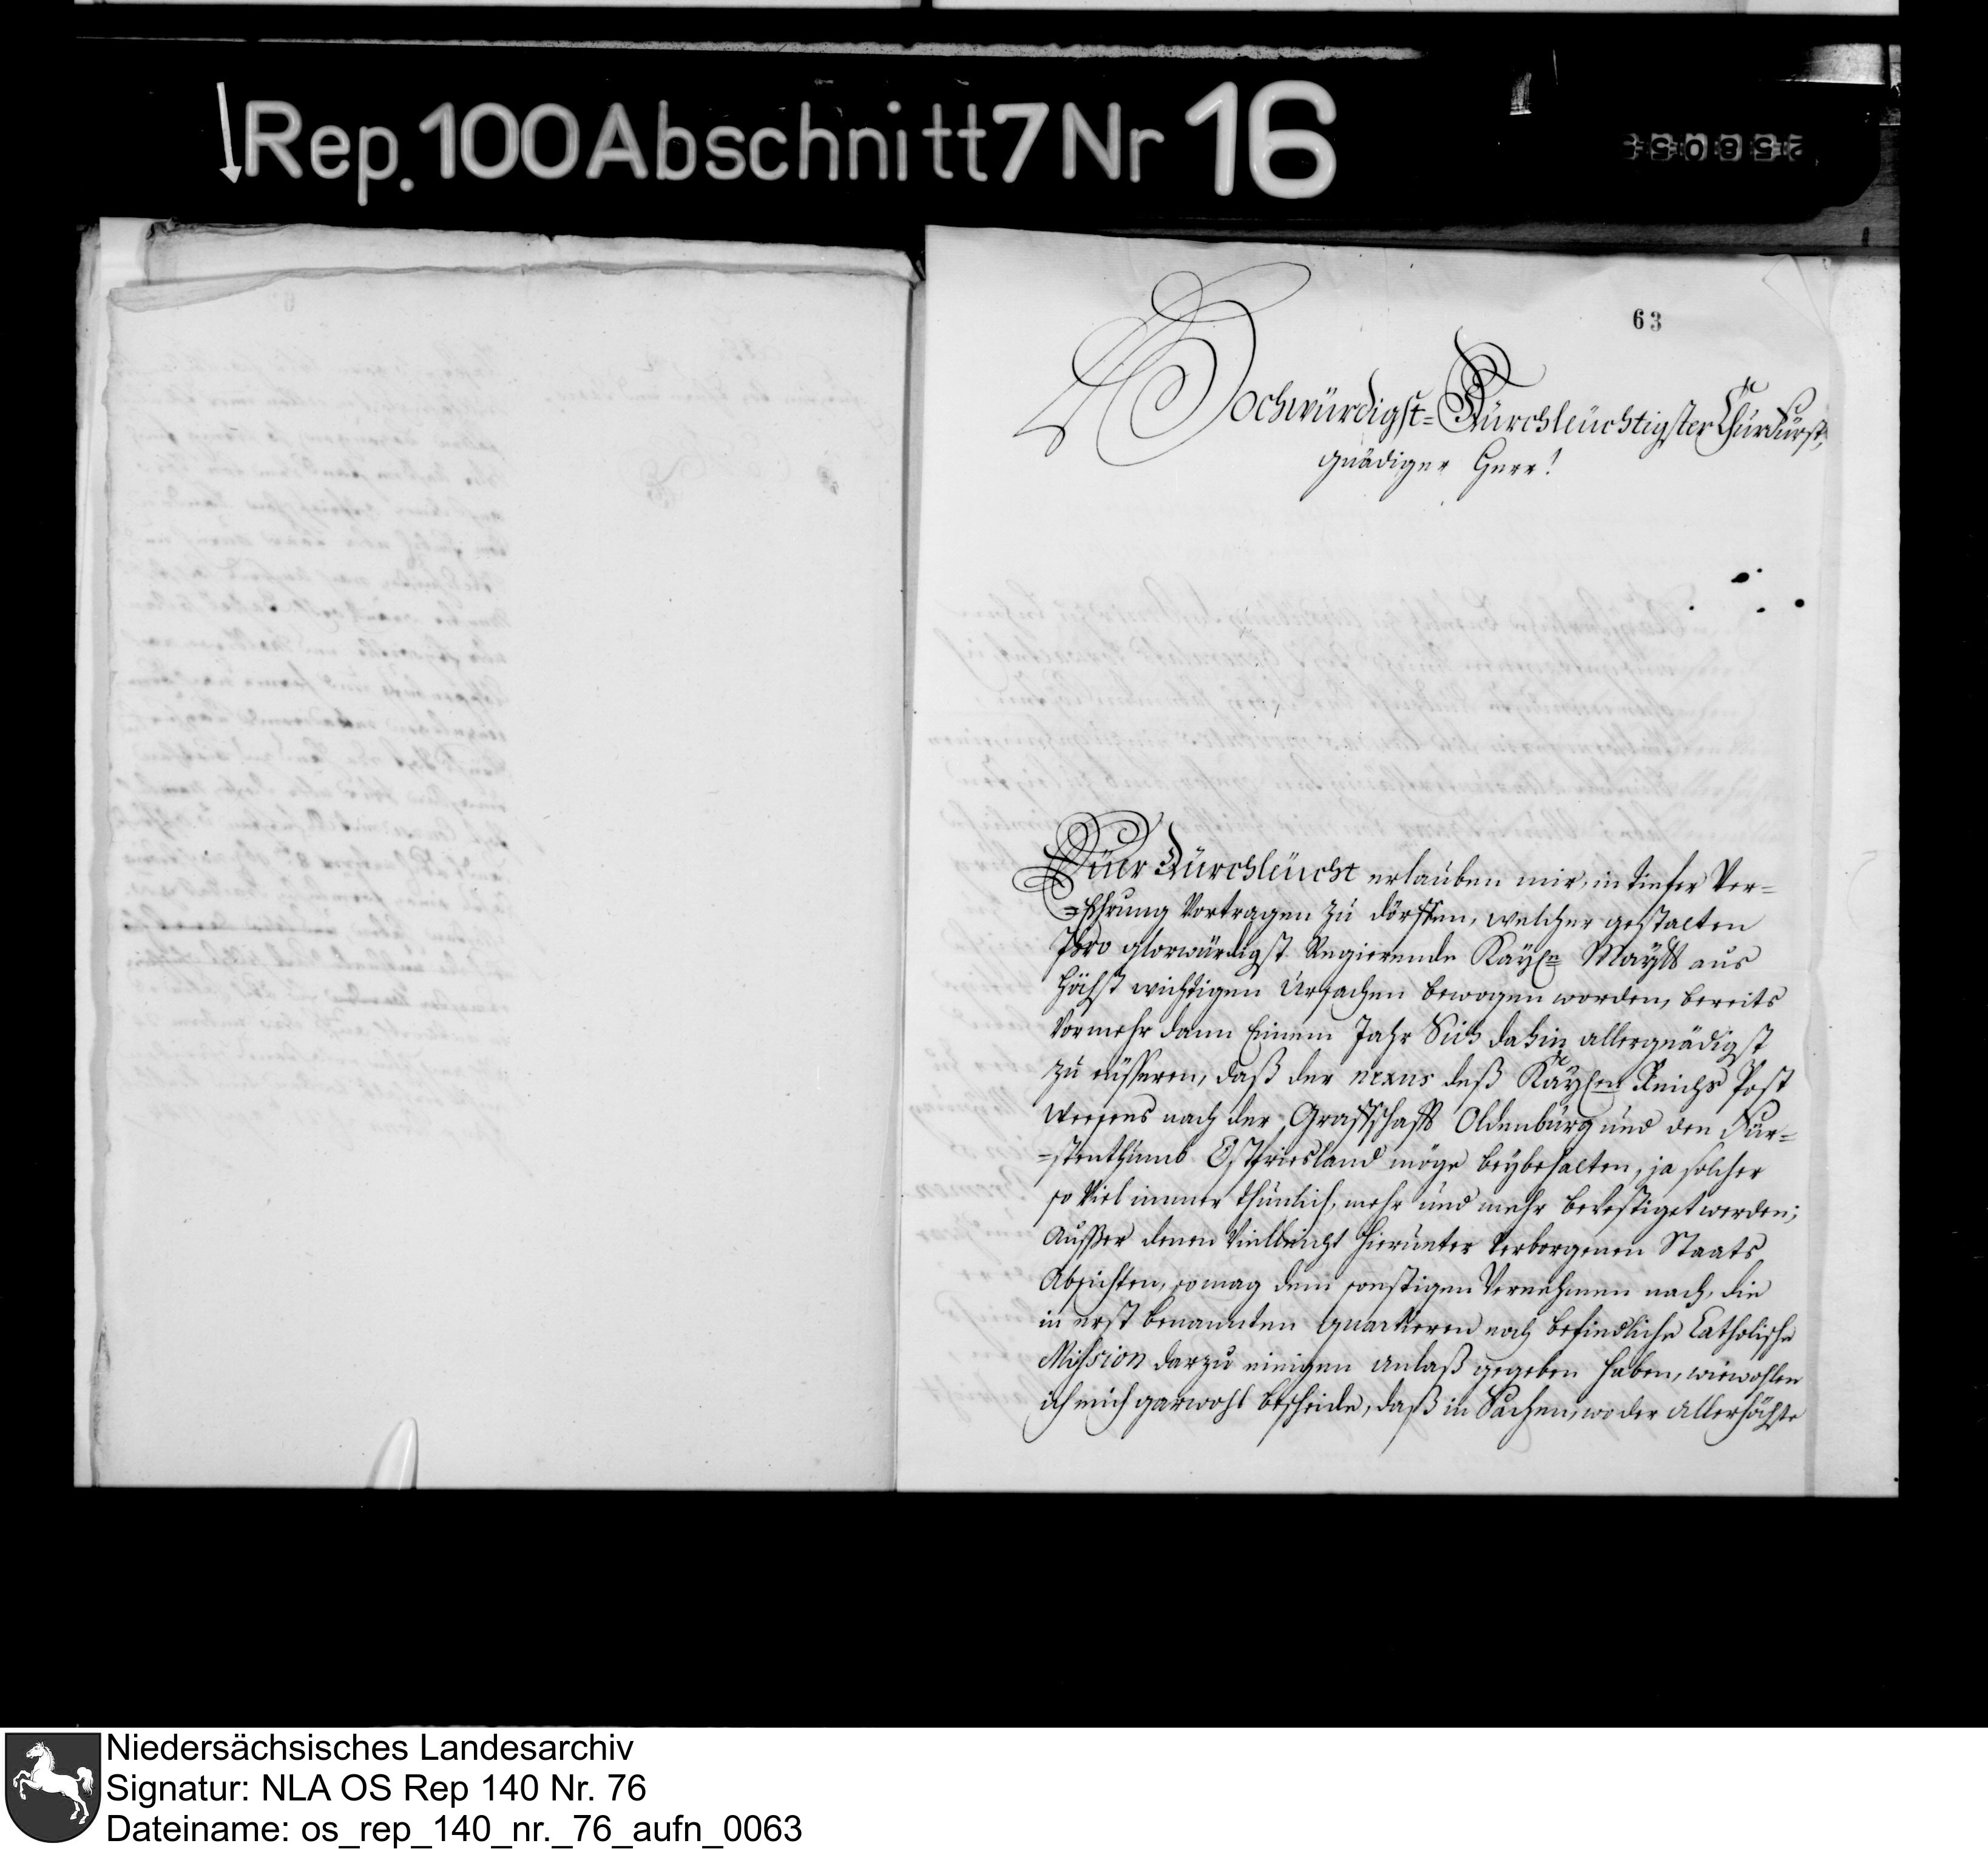 Rep. 100 Abschnitt 7 Nr 16
63
Hochwürdigst= Dürchleüchtigster Chürfürst,
gnädiger Herr!
Eüer Dürchleücht erlaüben mir, in tiefer Ver=
=Ehrung Vortragen zü dörffen, welcher gestalten
Ihro glorwürdigst Regierende Kayßn Maytt aus
höchst wichtigen Ürsachen bewogen worden, bereits
Vormehr dann Einem Jahr Sich dahin allergnädigst
zü eüsseren, daß der nexus deß Kayßen Reichs Post
Weesens nach der Graffschafft Oldenbürg und den Für=
=stenthümb Ostfriesland möge beybehalten, ja solcher
so Viel immer thünlich, mehr und mehr bevestiget werden;
Aüsser denen Villeicht hierünter Verborgenen Staats
Absichten, so mag dem sonstigen Vernehmen nach, die
in erst benannten quartieren noch befindliche Catholische
Mission darzü einigen anlaß gegeben haben, wiewohlen
ich mich garwohl bescheide, daß in Sachen, wo der allerhöchste
Niedersächsisches Landesarchiv
Signatur: NLA OS Rep 140 Nr. 76
Dateiname: os_rep_140_nr._76_aufn_0063